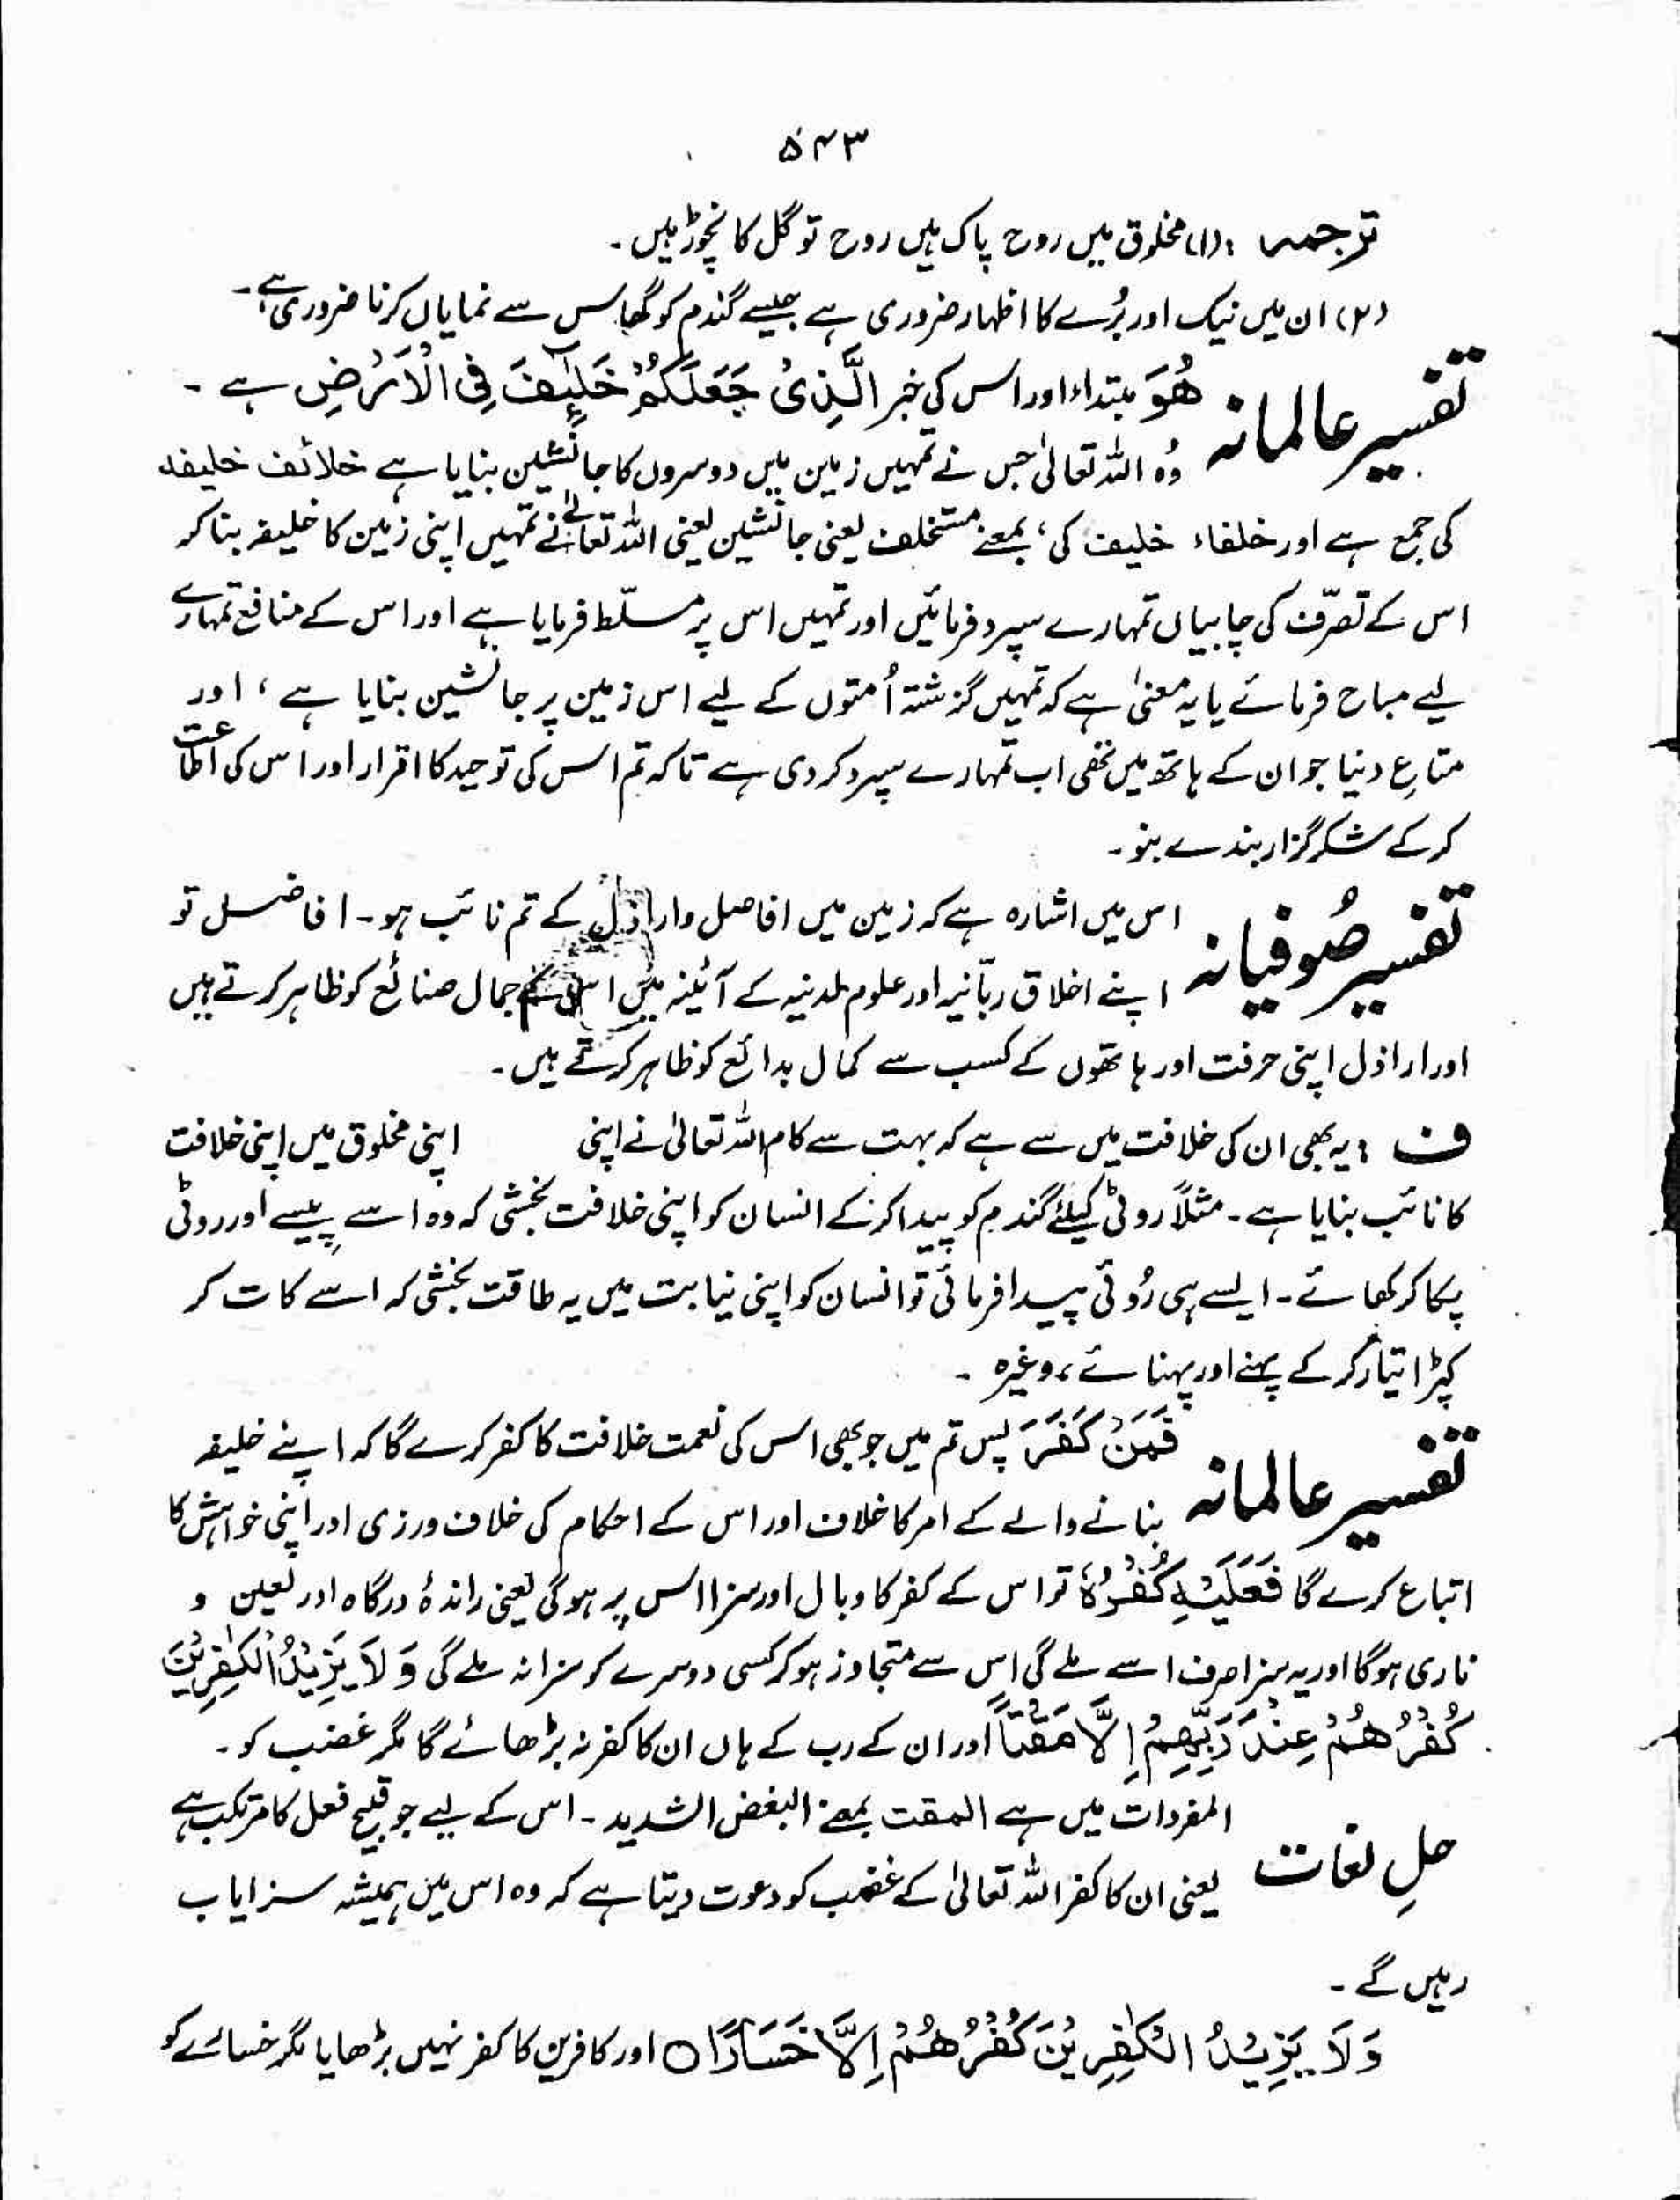 ۵۴۳
ترجمہ : (۱) مخلوق میں روح پاک ہیں روح تو گل کا نچوڑ ہیں۔
(۲) ان میں نیک اور بُرے کا اظہار ضروری ہے جیسے گندم کو گھاس سے نمایاں کرنا ضروری ہے۔
تفسیر عالمانہ ھُوَ مبتداء اور اس کی خبر الَّذِیْ جَعَلَكُمْ خَلٰٓئِفَ فِی الْاَرْضِ ہے۔
وُہ اللہ تعالیٰ جس نے تمہیں زمین میں دوسروں کا جانشین بنایا ہے خلائف خلیفہ
کی جمع ہے اور خلفاء خلیف کی، بمعنے مستخلف یعنی جانشین یعنی اللہ تعالےٰ نے تمہیں اپنی زمین کا خلیفہ بنا کر
اس کے تصرّف کی چابیاں تمہارے سپرد فرمائیں اور تمہیں اس پر مسلّط فرمایا ہے اور اس کے منافع تمہارے
لیے مباح فرمائے یا یہ معنیٰ ہے کہ تمہیں گزشتہ اُمتوں کے لیے اس زمین پر جانشین بنایا ہے، اور
متاعِ دنیا جو ان کے ہاتھ میں تھی اب تمہارے سپرد کر دی ہے تاکہ تم اس کی توحید کا اقرار اور اس کی اطاعت
کر کے شکر گزار بندے بنو۔
تفسیر صُوفیانہ اس میں اشارہ ہے کہ زمین میں افاضل و اراذل کے تم نائب ہو۔ افاضل تو
اپنے اخلاق ربّانیہ اور علوم لدنیہ کے آئینہ میں اس کے جمال صنائع کو ظاہر کرتے ہیں
اور اراذل اپنی حرفت اور ہاتھوں کے کسب سے کمال بدائع کو ظاہر کرتے ہیں۔
ف : یہ بھی ان کی خلافت میں سے ہے کہ بہت سے کام اللہ تعالیٰ نے اپنی اپنی مخلوق میں اپنی خلافت
کا نائب بنایا ہے۔ مثلاً روٹی کیلئے گندم کو پیدا کر کے انسان کو اپنی خلافت بخشی کہ وہ اسے پیسے اور روٹی
پکا کر کھائے۔ ایسے ہی رُوئی پیدا فرمائی تو انسان کو اپنی نیابت میں یہ طاقت بخشی کہ اسے کات کر
کپڑا تیار کر کے پہنے اور پہنائے، وغیرہ۔
تفسیر عالمانہ فَمَنْ كَفَرَ پس تم میں جو بھی اس کی نعمت خلافت کا کفر کرے گا کہ اپنے خلیفہ
بنانے والے کے امر کا خلاف اور اس کے احکام کی خلاف ورزی اور اپنی خواہش کا
اتباع کرے گا فَعَلَیْهِ كُفْرُهٗ تو اس کے کفر کا وبال اور سزا اس پر ہو گی یعنی راندۂ درگاہ اور لعین و
ناری ہوگا اور یہ سزا صرف اسے ملے گی اس سے متجاوز ہو کر کسی دوسرے کو سزا نہ ملے گی وَ لَا یَزِیْدُ الْكٰفِرِیْنَ
كُفْرُهُمْ عِنْدَ رَبِّهِمْ اِلَّا مَقْتًا اور ان کے رب کے ہاں ان کا کفر نہ بڑھائے گا مگر غضب کو۔
حلِ لغات المفردات میں ہے المقت بمعنے البغض الشدید۔ اس کے لیے جو قبیح فعل کا مرتکب ہے
یعنی ان کا کفر اللہ تعالیٰ کے غضب کو دعوت دیتا ہے کہ وہ اس میں ہمیشہ سزا یاب
رہیں گے۔
وَلَا یَزِیْدُ الْكٰفِرِیْنَ كُفْرُهُمْ اِلَّا خَسَارًا ○ اور کافرین کا کفر نہیں بڑھایا مگر خسارے کو